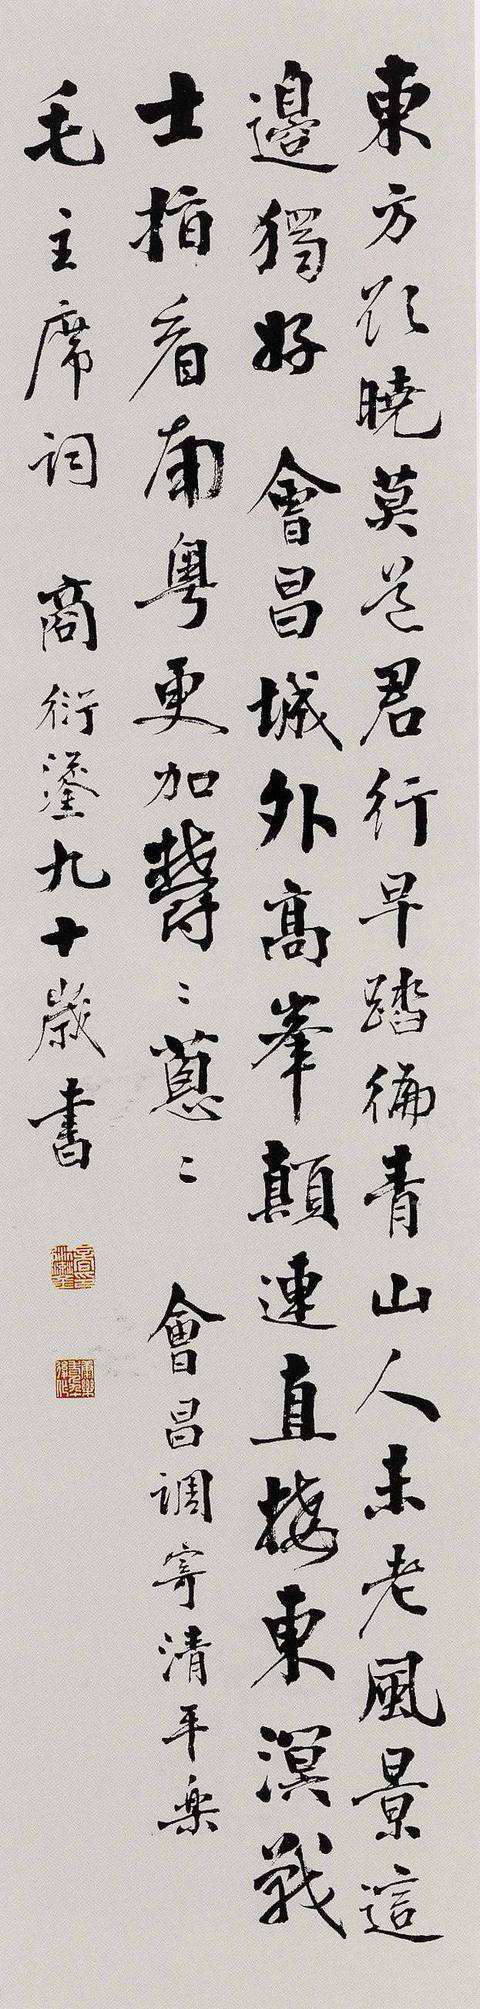 東方欲曉莫道君行早踏徧青山人未老風景這
邊獨好 會昌城外高峯顛連直接東溟戰
士指看南粤更加欝〻蔥〻 會昌調寄清平樂
毛主席詞 商衍鎏九十歲書